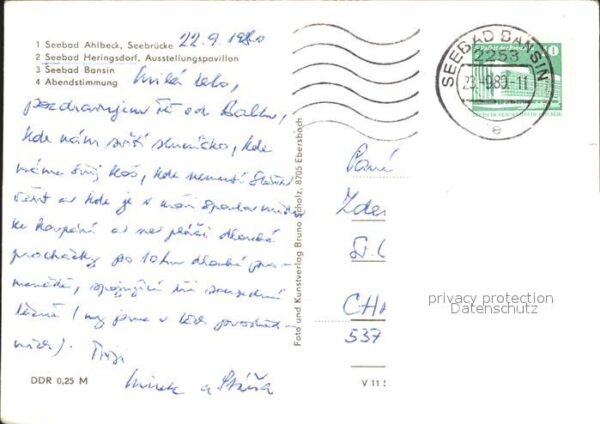 22.9.1980
1 Seebad Ahlbeck, Seebrücke
2 Seebad Heringsdorf, Ausstellungspavillon
3 Seebad Bansin
4 Abendstimmung
Milá
pozdravujeme Tě od Baltu,
kde nám svítí sluníčko, kde
máme svůj koš, kde nemusí Stáňa
a kde je v moři
ke koupání a na pláži dlouhé
procházky po 10 km dlouhé
spojující tři sousední
(my jsme v těch
). Tvoji
Mirek a Stáňa
DDR 0,25 M
Foto und Kunstverlag Bruno Scholz, 8705 Ebersbach
V 11
SEEBAD BANSIN
2253
23.-9.80.-11
e
Palast der Republik
DEUTSCHE DEMOKRATISCHE REPUBLIK
Paní
Zde
CH
537
privacy protection
Datenschutz